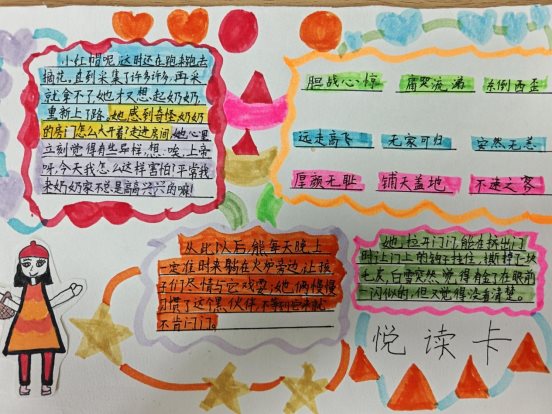 小红帽呢,这时还在跑来跑去
摘花,直到采集了许多许多,再采
就拿不了,她才又想起奶奶,
重新上了路。她感到奇怪,奶奶
的房门怎么大开着?走进房间,她心里
立刻觉得有些异样,想:唉,上帝
呀,今天我怎么这样害怕!平常我
来奶奶家不总是高高兴兴的嘛!
胆战心惊 痛哭流涕 东倒西歪
远走高飞 无家可归 安然无恙
厚颜无耻 铺天盖地 不速之客
从此以后,熊每天晚上
一定准时来躺在火炉旁边,让孩
子们尽情与它戏耍;她俩慢慢
习惯了这个黑伙伴,不等到它来就
不肯闩门。
她拉开门闩,熊在挤出门
时让门上的钩子挂住,撕掉了块
毛皮,白雪突然觉得有金子在眼前
一闪似的,但又觉得没看清楚。
悦读卡